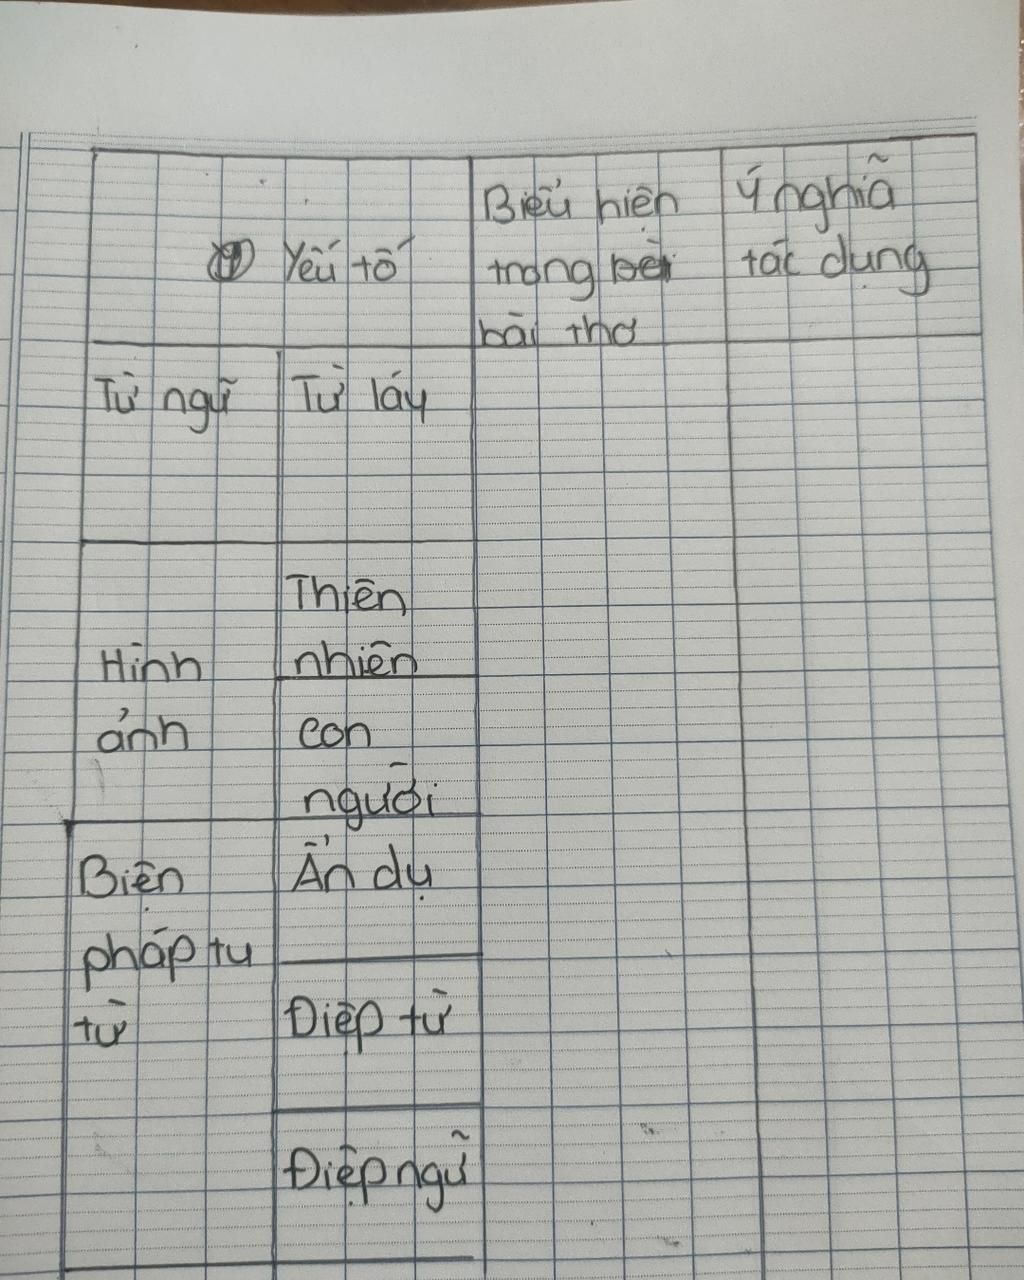 Yếu tố
Biểu hiện
trong
bài thơ
Ý nghĩa
tác dụng
Từ ngữ
Từ láy
Hình
ảnh
Thiên
nhiên
con
người
Biện
pháp tu
từ
Ẩn dụ
Điệp từ
Điệp ngữ